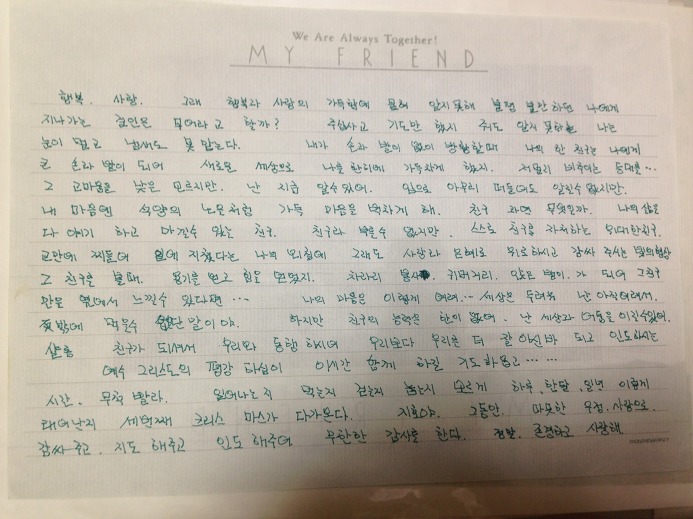 We Are Always Together!
MY FRIEND
행복. 사랑. 그래 행복과 사랑의 가득함에 묻혀 있지 못해 불평 불만 하던 나에게
지나가는 걸인은 뭐라고 할까? 주십사고 기도만 했지 줘도 있지 못하는 나는
눈이 멀고 냄새도 못 맡는다. 내가 손과 발이 없이 방황할때 나의 한 친구는 나에게
큰 손과 발이 되어 새로운 세상으로 나를 한아름 가득차게 했지. 저멀리 비추이는 등대를…
그 고마움을 낮은 모르지만. 난 지금 알수있어. 입으로 아무리 떠들어도 잊을수 없지만.
내 마음엔 석양의 노을처럼 가득 마음을 벅차게 해. 친구 과연 무엇일까. 나의 삶을
다 얘기 하고 마칠수 있는 친구. 친구라 부를수 없지만. 스스로 친구를 자처하는 위대한친구.
교만에 찌들어 일에 지쳤다는 나의 외침에 그래도 사랑과 은혜로 위로하시고 감싸 주시는 빛의형상
그 친구를 볼때. 용기를 얻고 힘을 얻었지. 차라리 귀머거리. 앉은 뱅이.가 되어 그친구
만을 옆에서 느낄수 있다면… 나의 마음은 이렇게 여려…세상은 두려워 난 아직어려서.
젖밖에 먹을수 없단 말이야. 하지만 친구의 능력은 한이 없어. 난 세상과 어둠을 이길수있어.
친구가 되셔서 우리와 동행 하시며 우리보다 우리를 더 잘 아신바 되고 인도하시는
예수 그리스도의 평강 타실이 이시간 함께 하길 기도하옵고……
시간. 무척 빨라. 일어나는지 먹는지 걷는지 눕는지 모르게 하루,한달,일년 이렇게
태어난지 세번째 크리스 마스가 다가온다. 지희야. 그동안. 따뜻한 우정.사랑으로.
감싸주고. 지도 해주고 인도 해주어 무한한 감사를 한다. 정말. 존경하고 사랑해